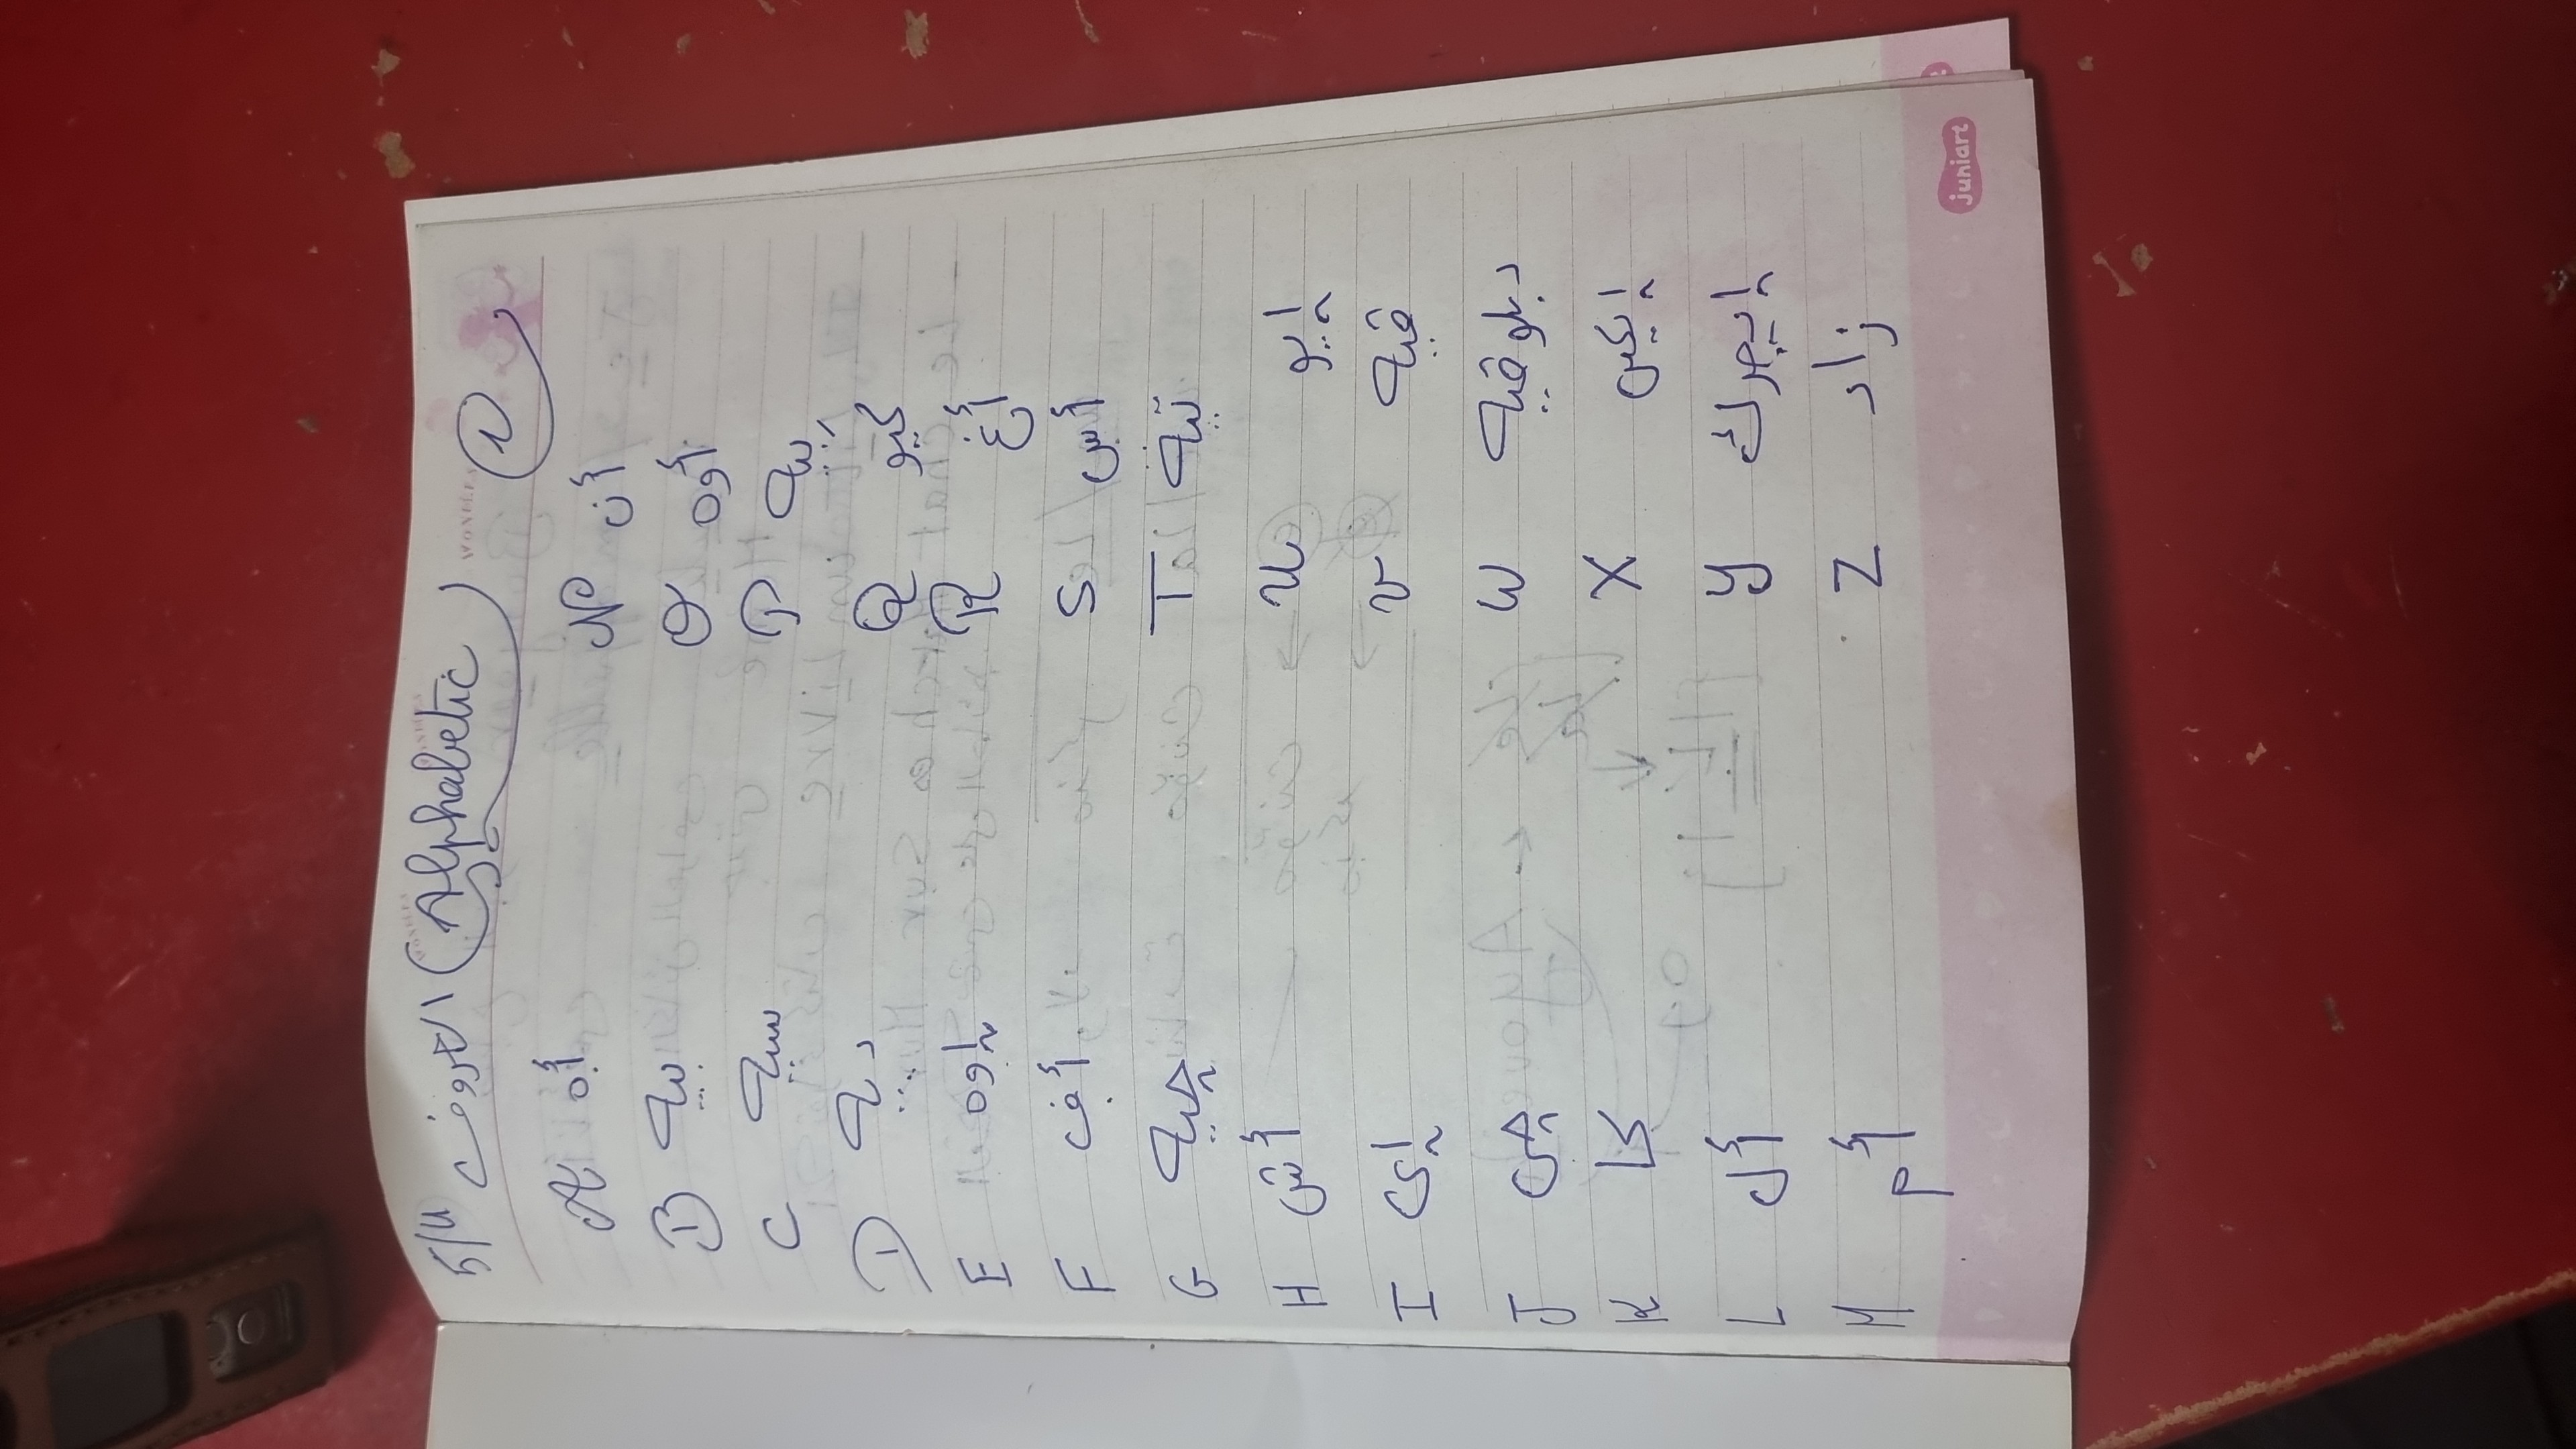 5/11 الحروف (Alphabetic) 1
A أه
B بيه
C سيه
D ديه
E إوه
F أف
G چيه
H أش
I إى
J چى
K كا
L أل
M أم
N أن
O أوه
P بيه
Q كيو
R أغ
S أس
T تيه
U إيو
V ڤيه
W دبلو ڤيه
X إيكس
Y إيجرك
Z زاد
juniart